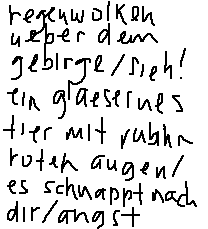 regenwolken
ueber dem
gebirge/sieh!
ein glaesernes
tier mit rubin
roten augen/
es schnappt nach
dir/angst